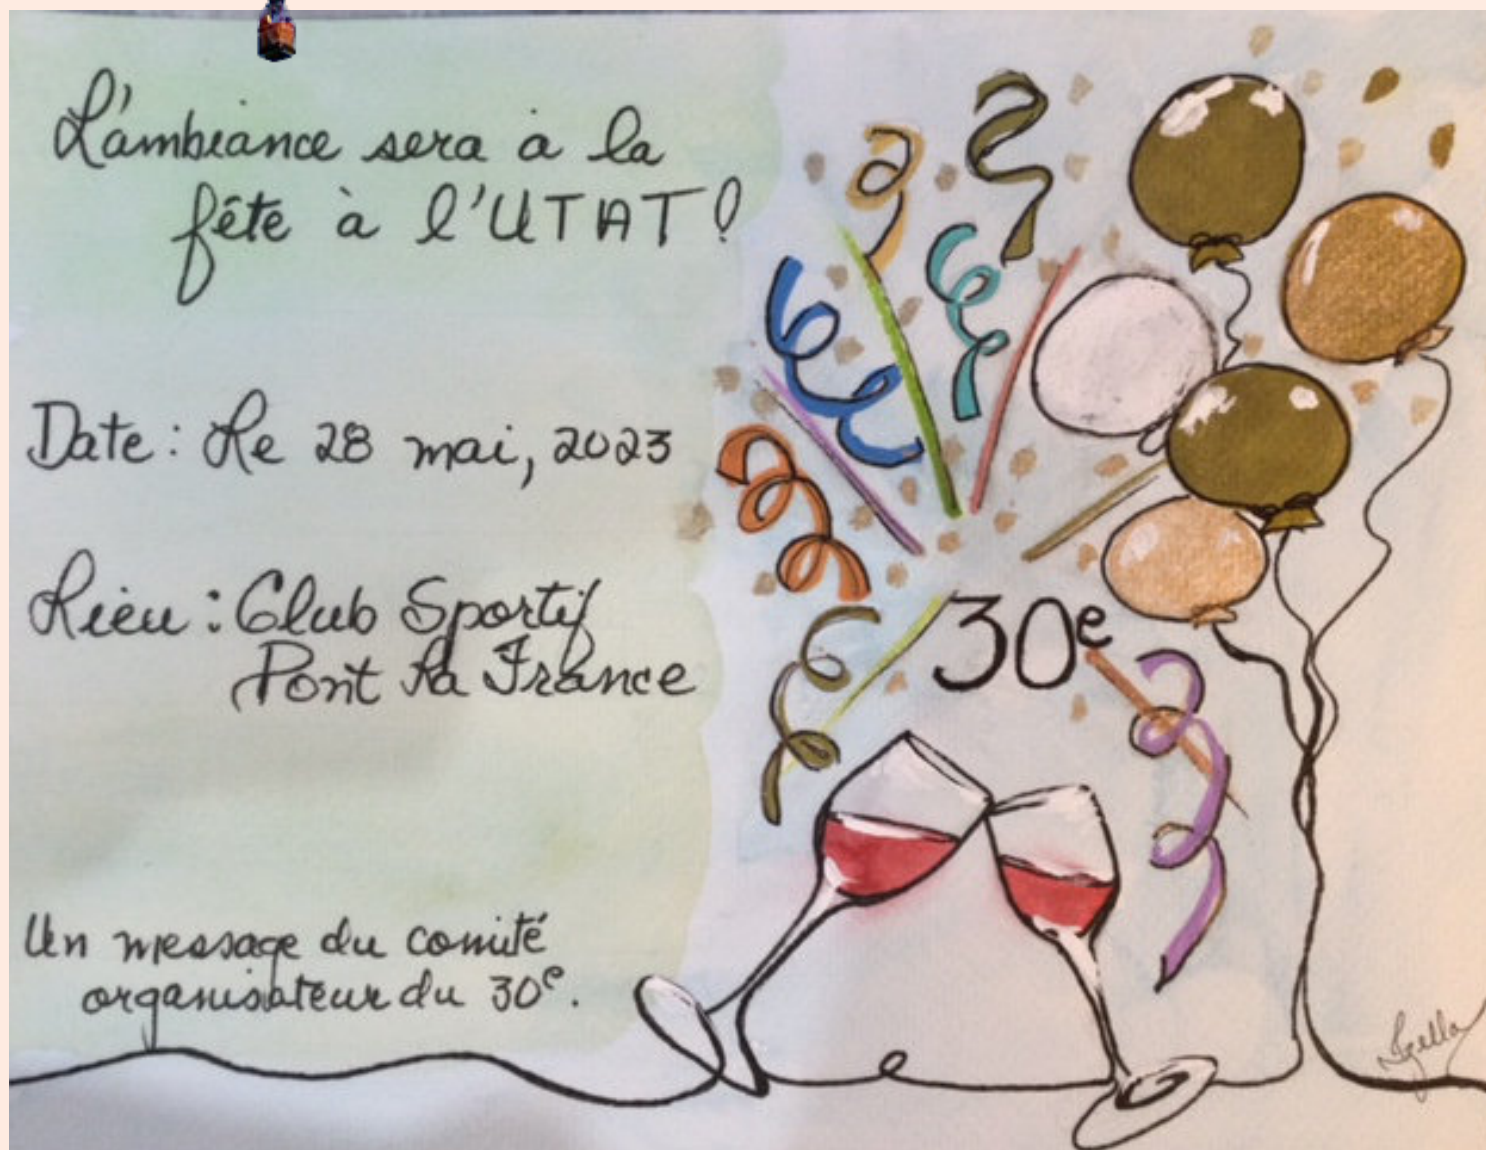 L'ambiance sera à la
fête à l'UTAT!
Date: Le 28 mai, 2023
Lieu: Club Sportif
Pont La France
Un message du comité
organisateur du 30e.
30e